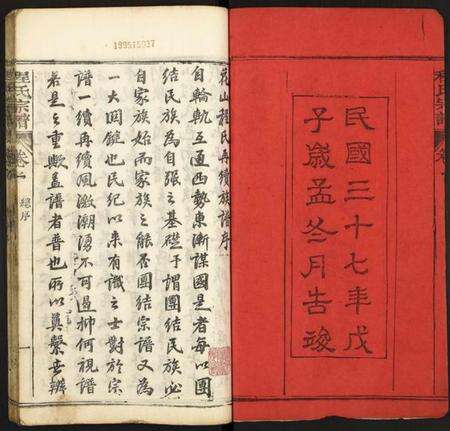 民國三十七年戊
子歲孟冬月吿竣
程氏宗譜
卷一
199515937
程氏再續族譜序
自輪軌互通西勢東漸謀國是者每以團
結民族為自強之基礎予謂團結民族必
自家族始而家族之能否團結宗譜又為
一大関鍵也民紀以來有識之士對於宗
譜一續再續風激潮湧不可遏抑何視譜
若是之重歟盖譜者普也所以奠繫世辨
程氏宗譜
卷一
總序
一